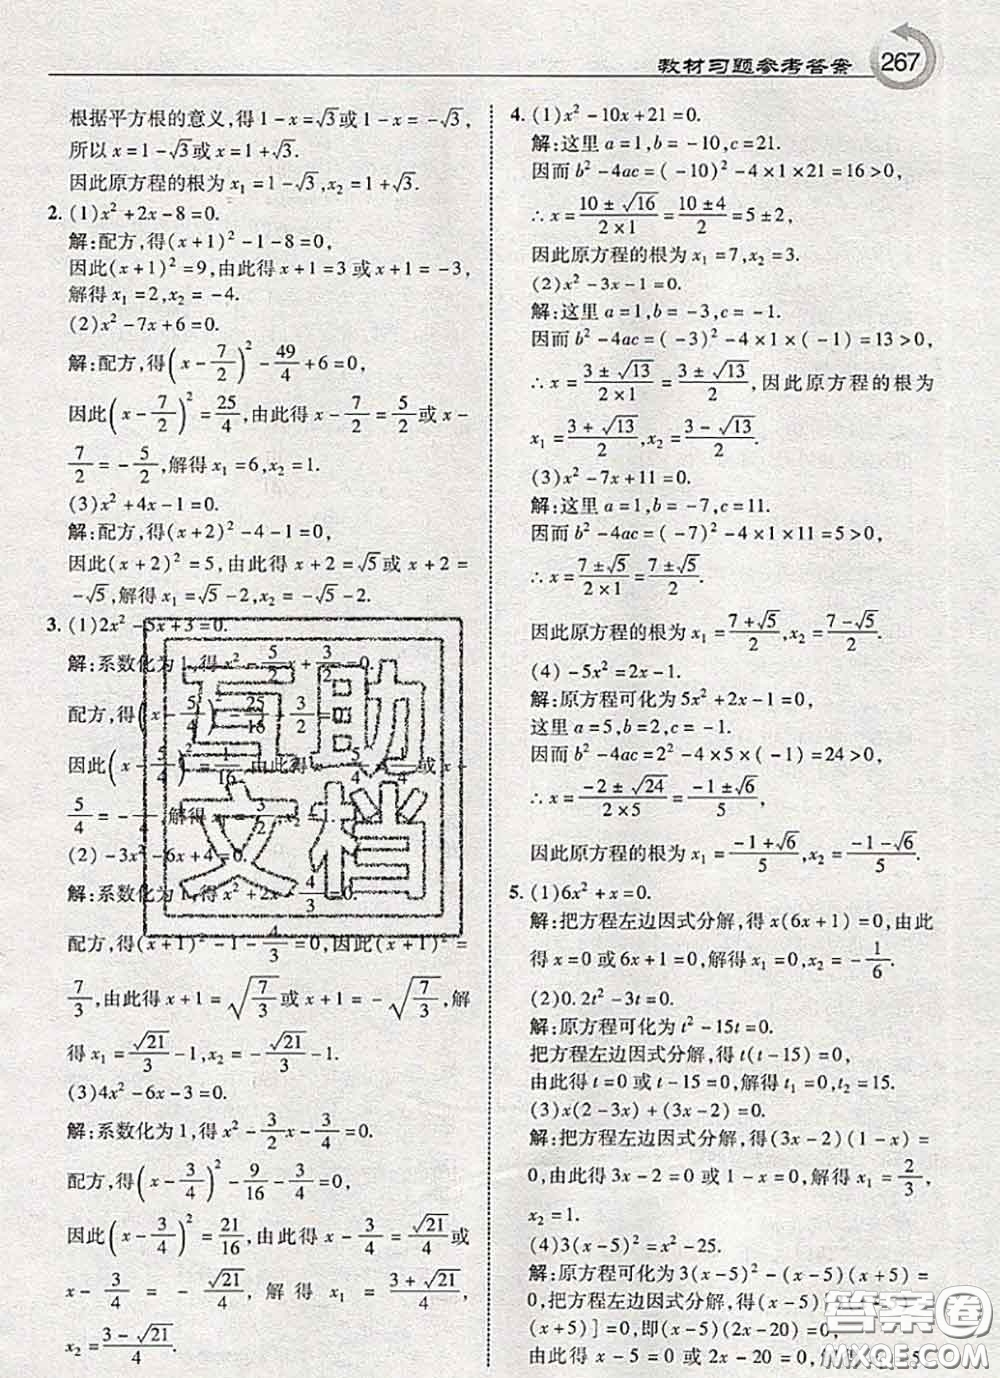 教材习题参考答案 267
根据平方根的意义,得1-x=√3或1-x=-√3,
所以x=1-√3或x=1+√3.
因此原方程的根为x₁=1-√3,x₂=1+√3.
2. (1)x²+2x-8=0.
解:配方,得(x+1)²-1-8=0,
因此(x+1)²=9,由此得x+1=3或x+1=-3,
解得x₁=2,x₂=-4.
(2)x²-7x+6=0.
解:配方,得(x-7/2)²-49/4+6=0,
因此(x-7/2)²=25/4,由此得x-7/2=5/2或x-
7/2=-5/2,解得x₁=6,x₂=1.
(3)x²+4x-1=0.
解:配方,得(x+2)²-4-1=0,
因此(x+2)²=5,由此得x+2=√5或x+2=
-√5,解得x₁=√5-2,x₂=-√5-2.
3. (1)2x²-5x+3=0.
解:系数化为1,得x²-5/2x+3/2=0.
配方,得(x-5/4)²-25/16+3/2=0
因此(x-5/4)²=1/16,由此得x-5/4=1/4或x-
5/4=-1/4,解得x₁=3/2,x₂=1.
(2)-3x²-6x+4=0.
解:系数化为1,得x²+2x-4/3=0.
配方,得(x+1)²-1-4/3=0,因此(x+1)²=
7/3,由此得x+1=√(7/3)或x+1=-√(7/3),解
得x₁=√21/3-1,x₂=-√21/3-1.
(3)4x²-6x-3=0.
解:系数化为1,得x²-3/2x-3/4=0.
配方,得(x-3/4)²-9/16-3/4=0,
因此(x-3/4)²=21/16,由此得x-3/4=√21/4或
x-3/4=-√21/4,解得x₁=(3+√21)/4,
x₂=(3-√21)/4.
4. (1)x²-10x+21=0.
解:这里a=1,b=-10,c=21.
因而b²-4ac=(-10)²-4×1×21=16>0,
∴x=(10±√16)/(2×1)=(10±4)/2=5±2,
因此原方程的根为x₁=7,x₂=3.
(2)x²-3x-1=0.
解:这里a=1,b=-3,c=-1.
因而b²-4ac=(-3)²-4×1×(-1)=13>0,
∴x=(3±√13)/(2×1)=(3±√13)/2,因此原方程的根为
x₁=(3+√13)/2,x₂=(3-√13)/2.
(3)x²-7x+11=0.
解:这里a=1,b=-7,c=11.
因而b²-4ac=(-7)²-4×1×11=5>0,
∴x=(7±√5)/(2×1)=(7±√5)/2.
因此原方程的根为x₁=(7+√5)/2,x₂=(7-√5)/2.
(4)-5x²=2x-1.
解:原方程可化为5x²+2x-1=0.
这里a=5,b=2,c=-1.
因而b²-4ac=2²-4×5×(-1)=24>0,
∴x=(-2±√24)/(2×5)=(-1±√6)/5,
因此原方程的根为x₁=(-1+√6)/5,x₂=(-1-√6)/5.
5. (1)6x²+x=0.
解:把方程左边因式分解,得x(6x+1)=0,由此
得x=0或6x+1=0,解得x₁=0,x₂=-1/6.
(2)0.2t²-3t=0.
解:原方程可化为t²-15t=0.
把方程左边因式分解,得t(t-15)=0,
由此得t=0或t-15=0,解得t₁=0,t₂=15.
(3)x(2-3x)+(3x-2)=0.
解:把方程左边因式分解,得(3x-2)(1-x)=
0,由此得3x-2=0或1-x=0,解得x₁=2/3,
x₂=1.
(4)3(x-5)²=x²-25.
解:原方程可化为3(x-5)²-(x-5)(x+5)=
0,把方程左边因式分解,得(x-5)
(x+5)]=0,即(x-5)(2x-20)=0,
由此得x-5=0或2x-20=0,
互助文档
答案卷